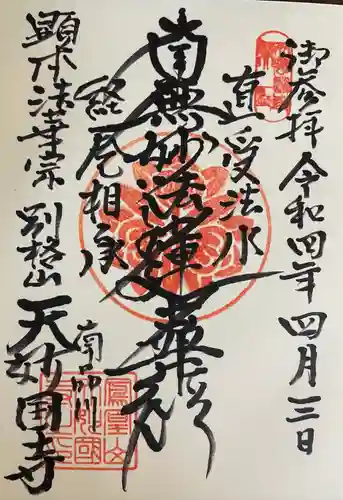 御参拝 令和四年四月三日
直受法水
南無妙法蓮華経
経巻相承
南品川
顕本法華宗 別格山
天妙国寺